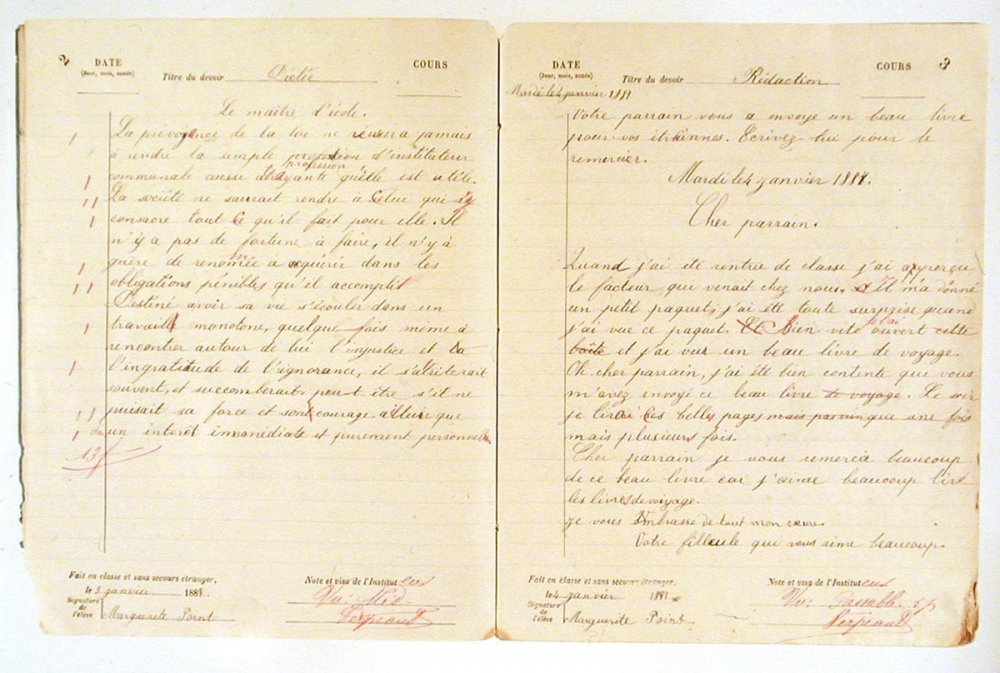 2
DATE
(Jour, mois, année)
Titre du devoir Dictée
COURS
Le maître d'école.
La prévoyance de la loi ne réussira jamais
à rendre la simple profession d'instituteur
profession
communale aussi attrayante qu'elle est utile.
La société ne saurait rendre à Celui qui s'y
consacre tout Ce qu'il fait pour elle. Il
n'y a pas de fortune à faire, il n'y à
guère de renomée a aquérir dans les
obligations pénibles qu'il accomplit
Destiné à voir sa vie s'écouler dans un
travaille monotone, quelque fois même à
rencontrer autour de lui l'injustice et
l'ingratitude de l'ignorance, il s'attristerait
souvent, et succomberait peut être s'il ne
puisait sa force et son courage ailleurs que
un intérêt immédiate et purement personnelle
13
Fait en classe et sans secours étranger,
le 3 janvier 188
Signature de l'élève
Marguerite Point
Note et visa de l'Instituteur
Vu: Méd.
DATE
(Jour, mois, année)
Mardi le 4 janvier
Titre du devoir Rédaction
COURS
3
Votre parrain vous a envoyé un beau livre
pour vos étrennes. Ecrivez-lui pour le
remercier.
Mardi le 4 janvier
Cher parrain.
Quand j'ai été rentrée de classe j'ai aperçu
le facteur qui venait chez nous. Il m'a donné
un petit paquet; j'ai été toute surprise quand
j'ai vue ce paquet. Bien vite je l'ai ouvert cette
boîte et j'ai vus un beau livre de voyage.
Oh. cher parrain, j'ai été bien contente que vous
m'avez envoyé ce beau livre de voyage. Le soir
je lirai ces belles pages mais parrain que une fois
mais plusieurs fois.
Cher parrain je vous remercie beaucoup
de ce beau livre car j'aime beaucoup lire
les livres de voyage.
Je vous embrasse de tout mon cœur.
Votre filleule qui vous aime beaucoup.
Fait en classe et sans secours étranger,
le 4 janvier 188
Signature de l'élève
Marguerite Point
Note et visa de l'Instituteur
Vu: Passable